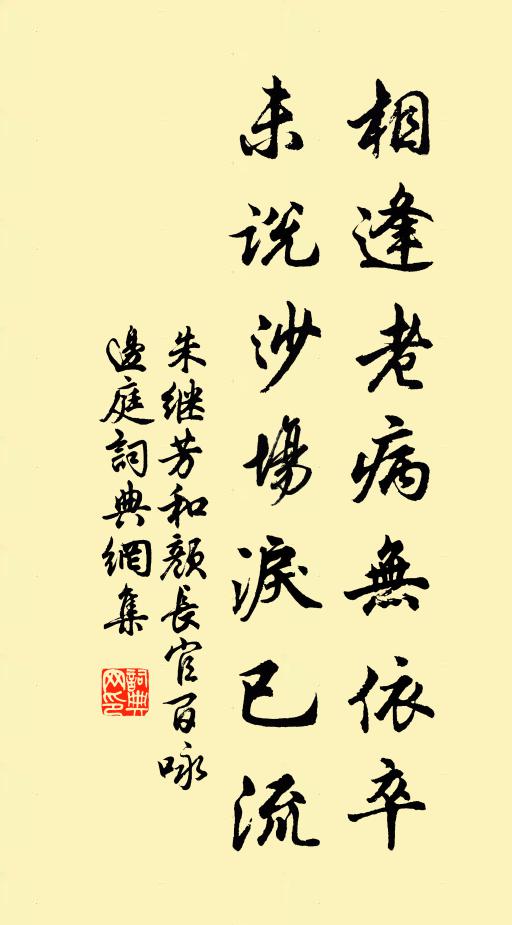 相逢老病無依卒
未說沙場淚已流
朱继芳和顏長官百咏
邊庭詞典網集
詞典
网印